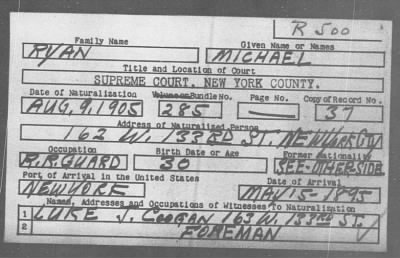 R 500
Family Name Given Name or Names
RYAN MICHAEL
Title and Location of Court
SUPREME COURT, NEW YORK COUNTY.
Date of Naturalization Volume or Bundle No. Page No. Copy of Record No.
AUG. 9, 1905 285 — 37
Address of Naturalized Person
162 W. 133RD ST. NEW YORK CITY
Occupation Birth Date or Age Former Nationality
R.R. GUARD 30 SEE-OTHER-SIDE
Port of Arrival in the United States Date of Arrival
NEW YORK MAY 15-1895
Names, Addresses and Occupations of Witnesses To Naturalization
1 LUKE J. COOGAN 163 W. 133RD ST.
2 FOREMAN